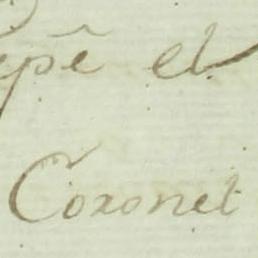 epê et
Coronet